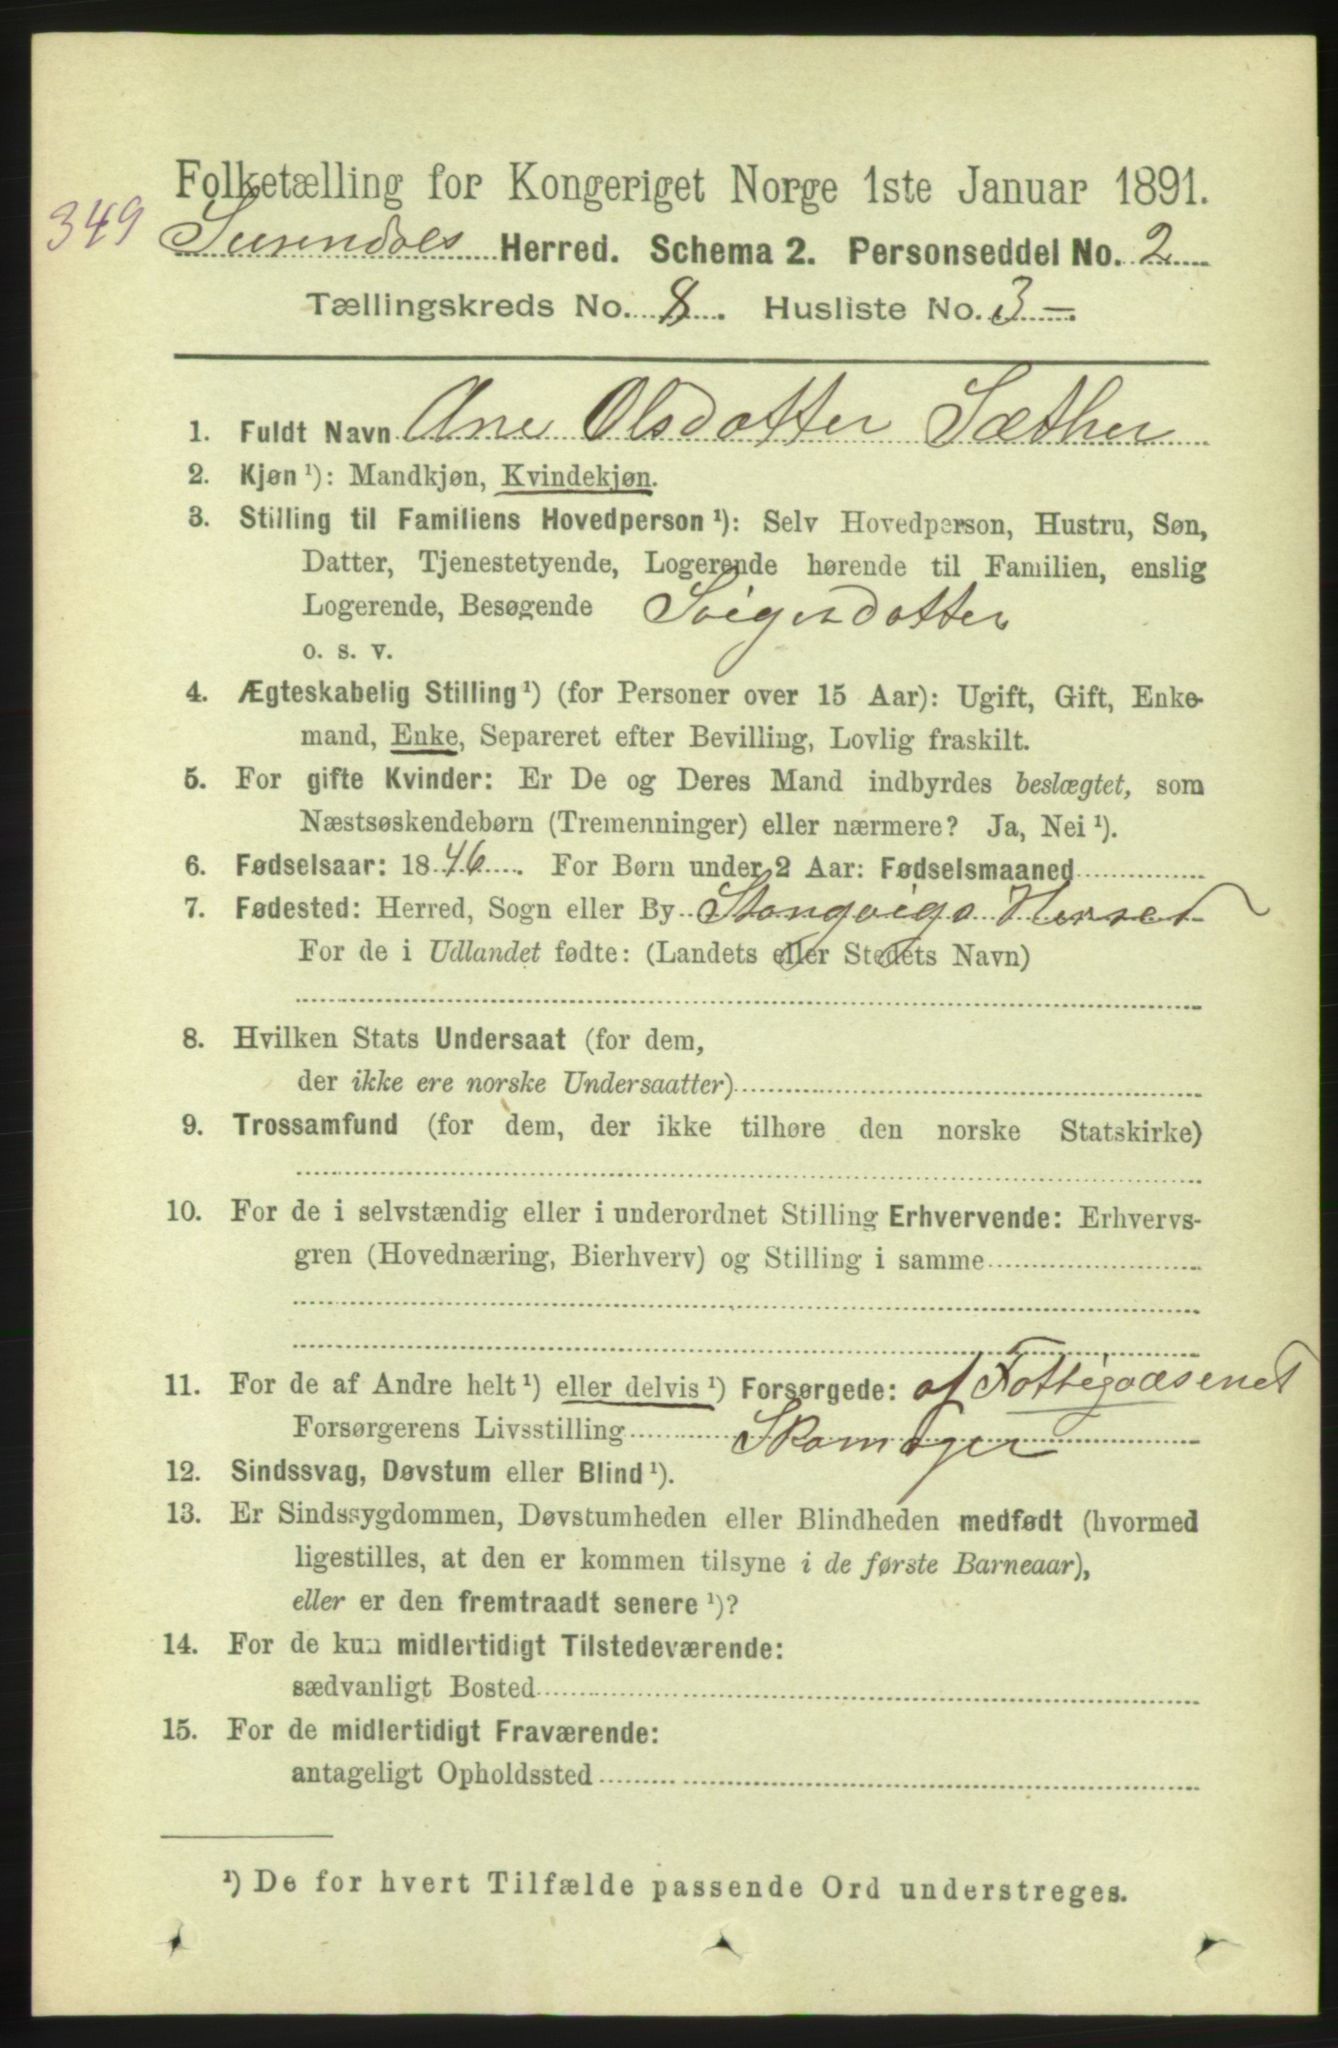 Folketælling for Kongeriget Norge 1ste Januar 1891.
349
Surendals Herred. Schema 2. Personseddel No. 2
Tællingskreds No. 8. Husliste No. 3 —.
1. Fuldt Navn Ane Olsdatter Sæther
2. Kjøn ¹): Mandkjøn, Kvindekjøn.
3. Stilling til Familiens Hovedperson ¹): Selv Hovedperson, Hustru, Søn,
Datter, Tjenestetyende, Logerende hørende til Familien, enslig
Logerende, Besøgende Svigerdatter
o. s. v.
4. Ægteskabelig Stilling ¹) (for Personer over 15 Aar): Ugift, Gift, Enke-
mand, Enke, Separeret efter Bevilling, Lovlig fraskilt.
5. For gifte Kvinder: Er De og Deres Mand indbyrdes beslægtet, som
Næstsøskendebørn (Tremenninger) eller nærmere? Ja, Nei ¹).
6. Fødselsaar: 1846. For Børn under 2 Aar: Fødselsmaaned
7. Fødested: Herred, Sogn eller By Stangvigs Herred
For de i Udlandet fødte: (Landets eller Stedets Navn)
8. Hvilken Stats Undersaat (for dem,
der ikke ere norske Undersaatter)
9. Trossamfund (for dem, der ikke tilhøre den norske Statskirke)
10. For de i selvstændig eller i underordnet Stilling Erhvervende: Erhvervs-
gren (Hovednæring, Bierhverv) og Stilling i samme
11. For de af Andre helt ¹) eller delvis ¹) Forsørgede: af Fattigvæsenet
Forsørgerens Livsstilling Skomager
12. Sindssvag, Døvstum eller Blind ¹).
13. Er Sindssygdommen, Døvstumheden eller Blindheden medfødt (hvormed
ligestilles, at den er kommen tilsyne i de første Barneaar),
eller er den fremtraadt senere ¹)?
14. For de kun midlertidigt Tilstedeværende:
sædvanligt Bosted
15. For de midlertidigt Fraværende:
antageligt Opholdssted
¹) De for hvert Tilfælde passende Ord understreges.